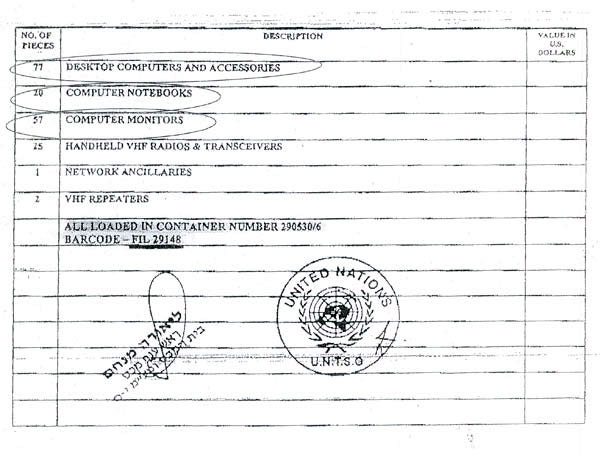 NO. OF PIECES DESCRIPTION VALUE IN U.S. DOLLARS
77 DESKTOP COMPUTERS AND ACCESSORIES
20 COMPUTER NOTEBOOKS
57 COMPUTER MONITORS
15 HANDHELD VHF RADIOS & TRANSCEIVERS
1 NETWORK ANCILLARIES
2 VHF REPEATERS
ALL LOADED IN CONTAINER NUMBER 290530/6
BARCODE – FIL 29148
ליאורה מנחם
ראש ענף מכס
בית המכס
UNITED NATIONS
U.N.T.S.O